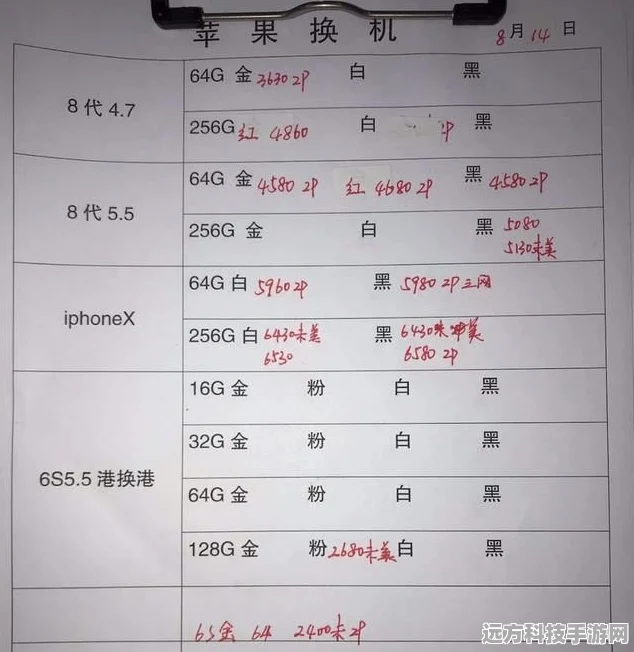 苹果换机 8月14日
8代4.7
64G 金 3630 2P 白 黑
256G 红 4860 白 黑
8代5.5
64G 金 4580 2P 红 4680 2P 黑 4580 2P
256G 金 白 黑 5080
5130未美
iphoneX
64G 白 5960 2P 黑 5980 2P 三网
256G 白 6430未美 黑 6430未 美
6530 6580 2P
6S5.5 港换港
16G 金 粉 白 黑
32G 金 粉 白 黑
64G 金 粉 白 黑
128G 金 粉 2680未美 白 黑
6S金 64 2400未2P
远方科技手游网